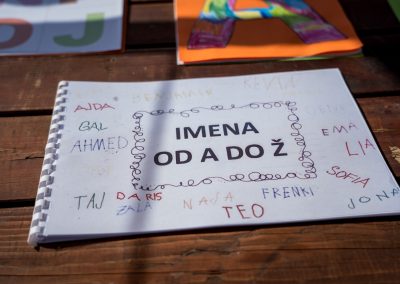 O J
A
AJDA
GAL
AHMED
IMENA
OD A DO Ž
EMA
LIA
SOFIA
TAJ
DARIS
ZALA
NAJA
TEO
FRENKI
JONA